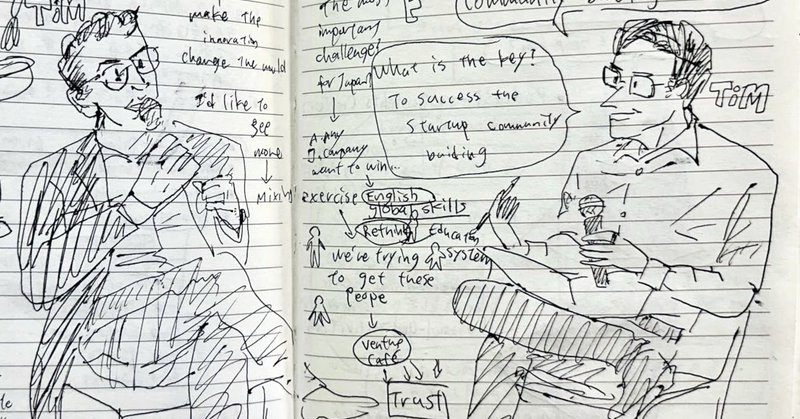 TiM
make the
innovation
change the world
I'd like to
see
more
Mixing
The most
important
challenges
for Japan?
A.Any
J.company
want to win...
exercise English
global skills
Rething Education
System
we're trying
to get these
peope
Venture
Café
Trust
Community
What is the key?
To success the
startup community
buiding
TiM